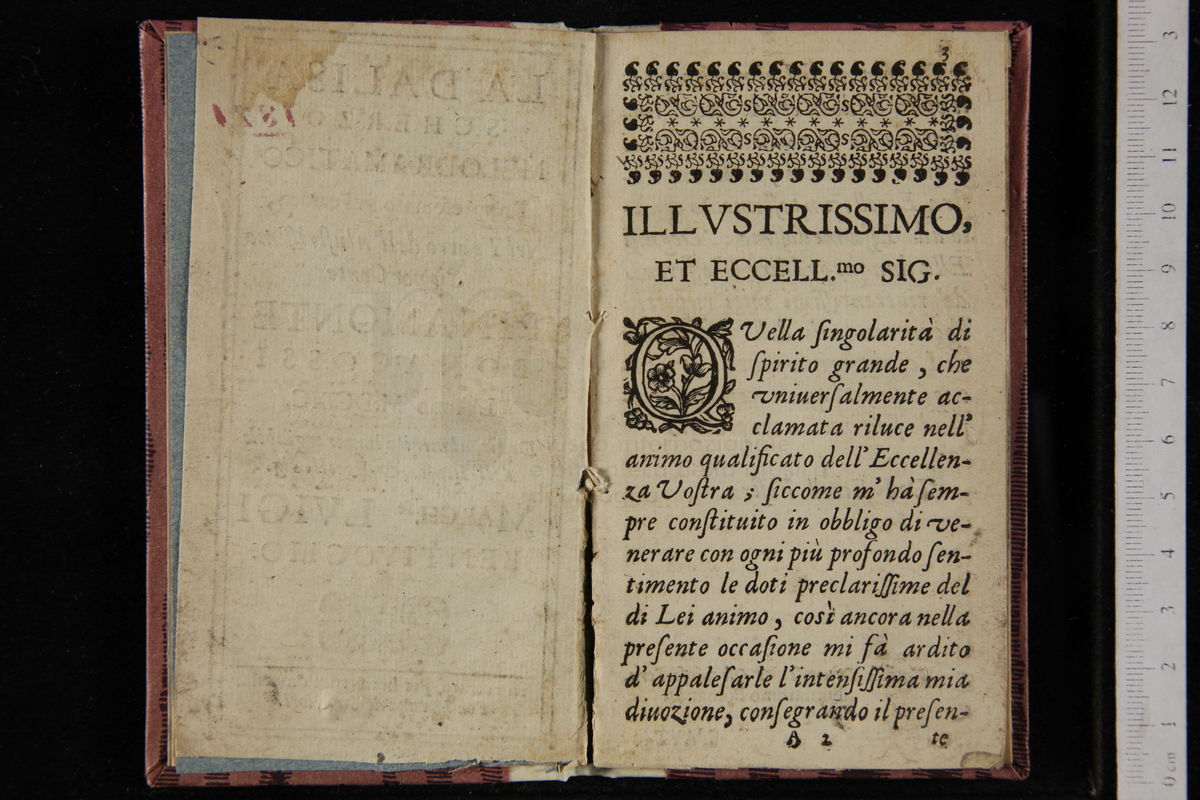 3
ILLVSTRISSIMO,
ET ECCELL.mo SIG.
QVella ſingolarità di
ſpirito grande, che
vniuerſalmente ac-
clamata riluce nell'
animo qualificato dell'Eccellen-
za Voſtra; ſiccome m'hà ſem-
pre conſtituito in obbligo di ve-
nerare con ogni più profondo ſen-
timento le doti preclariſſime del
di Lei animo, così ancora nella
preſente occaſione mi fà ardito
d'appaleſarle l'intenſiſſima mia
diuozione, conſegrando il preſen-
A 2 te
LA DALISA
SCHERZO
MELODRAMATICO
MARCH. LVIGI
BENTIVOGLIO
0 cm 1 2 3 4 5 6 7 8 9 10 11 12 3